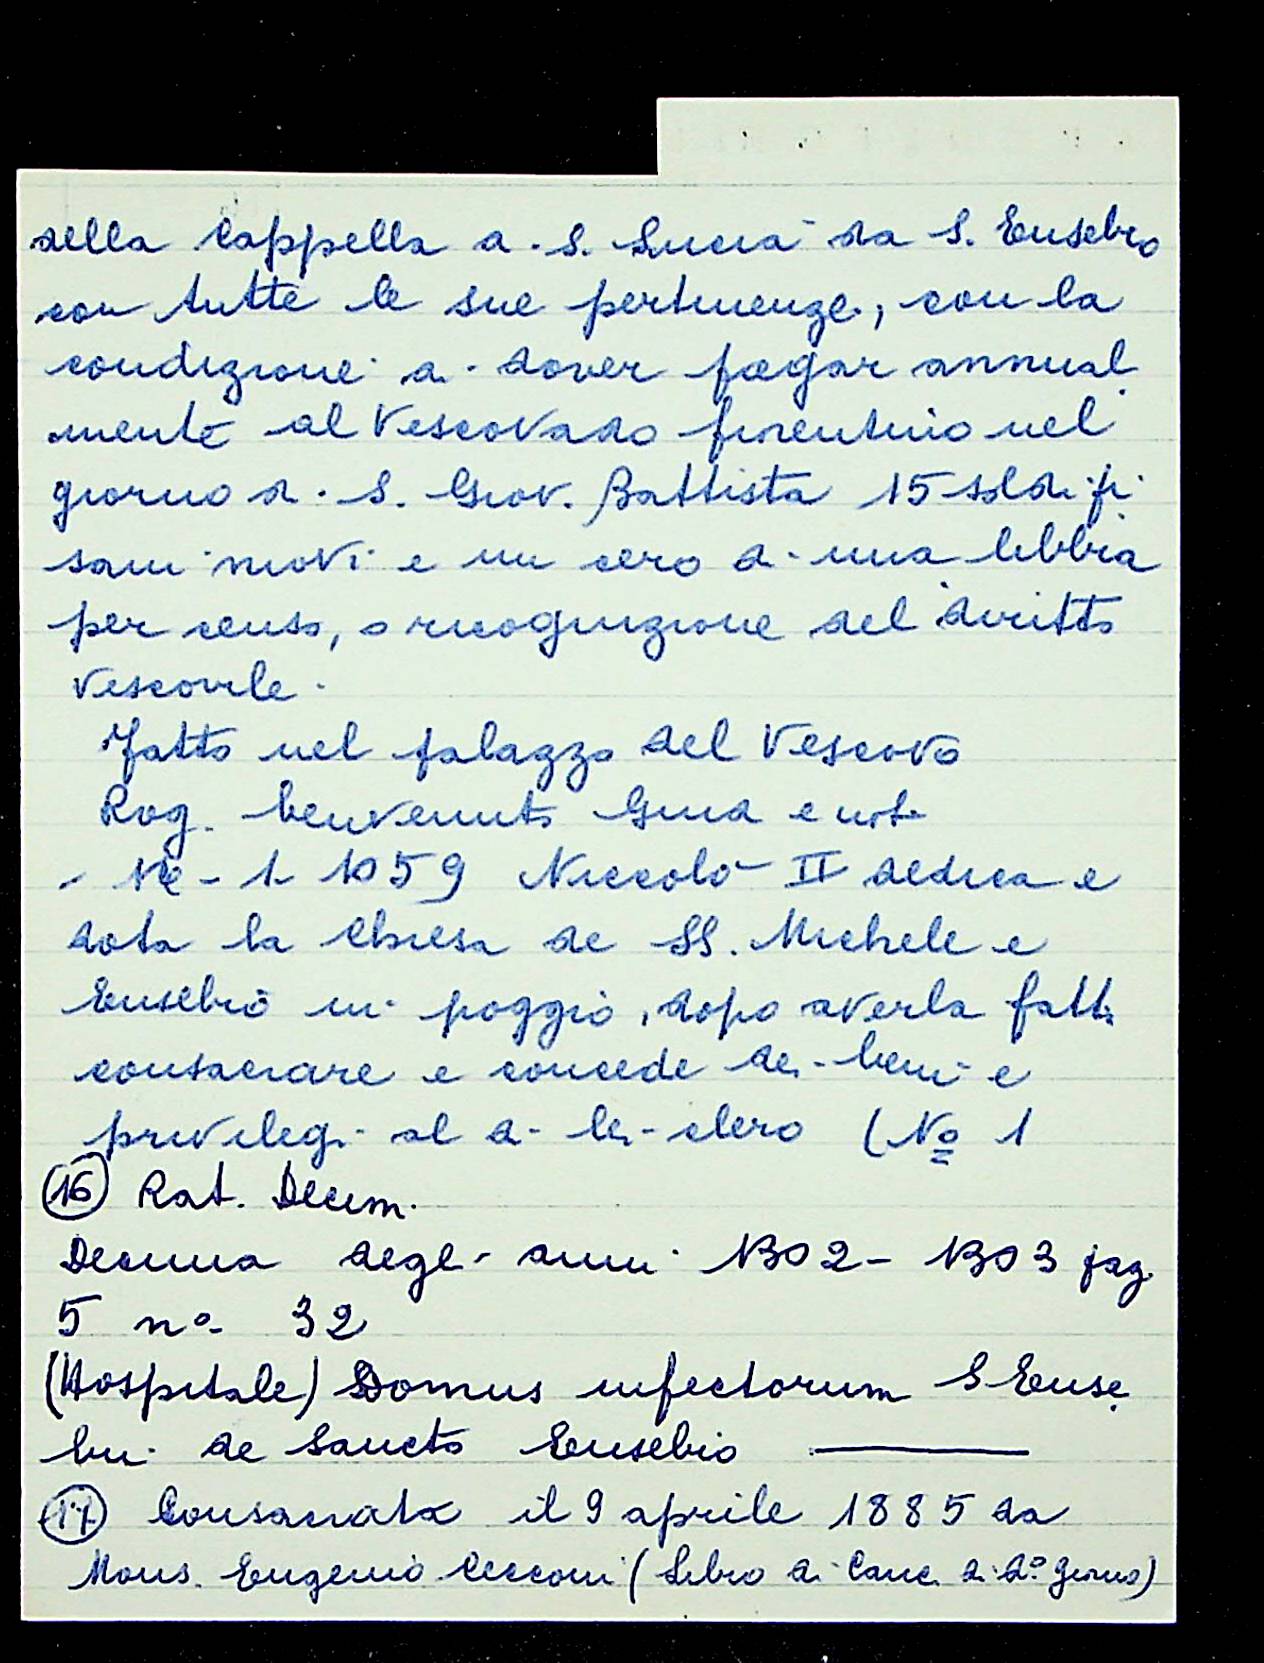 della Cappella di S. Lucia da S. Eusebio
con tutte le sue pertinenze, con la
condizione di dover pagar annual
mente al Vescovado fiorentino nel
giorno di S. Giov. Battista 15 soldi pi
sani novi e un cero di una libbra
per censo, o ricognizione del diritto
Vescovile.
Fatto nel palazzo del Vescovo
Rog. benvenuto Giud e not
1059 Niccolò II dedica e
dota la Chiesa de SS. Michele e
Eusebio in poggio, dopo averla fatta
consacrare e concede dei beni e
privilegi al di lei clero (No 1
(16) Rat. Decim.
Decima degli anni 1302 - 1303 pag.
5 no 32
(Hospitale) Domus infectorum S Euse
bii de Sancto Eusebio
(17) Consacrata il 9 aprile 1885 da
Mons. Eugenio Cecconi (Libro di Canc. di do giorno)